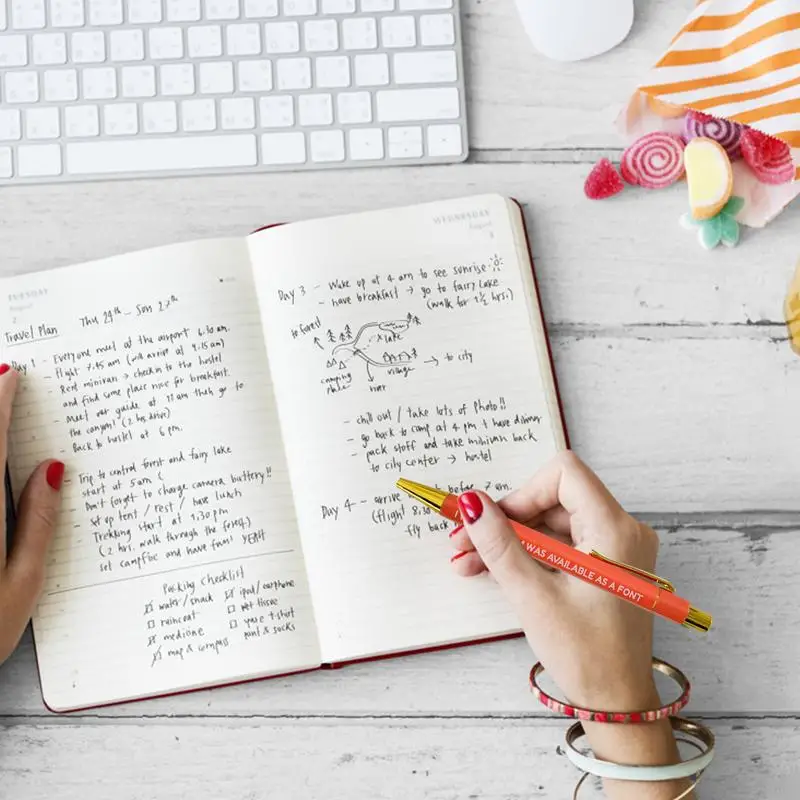 TUESDAY
August
2
Travel Plan Thu 24th - Sun 27th
Day 1 - Everyone meet at the airport 6.30 am.
- flight 7.45 am (will arrive at 9.15 am)
- Rent minivan → check in to the hostel
and find some place nice for breakfast.
- Meet our guide at 11 am then go to
the canyon (2 hrs drive)
- Back to hostel at 6 pm.
- Trip to central forest and fairy lake
start at 5 am (
- Don't forget to charge camera battery!!
- Set up tent / rest / have lunch
- Trekking start at 1.30 pm
(2 hrs. walk through the forest)
- set campfire and have fun! YEAH
Packing Checklist
water/snack
raincoat
medicine
map & compass
ipod/earphone
wet tissue
spare t-shirt
pant & socks
WEDNESDAY
August
3
Day 3 - Wake up at 4 am to see sunrise
- have breakfast → go to fairy lake
(walk for 1 1/2 hrs.)
to forest
lake
→ to city
village
camping place
river
- chill out / take lots of photo!!
- go back to camp at 4 pm + have dinner
- pack stuff and take minivan back
to city center → hostel
Day 4 - arrive before 7 am.
(flight 8.30
fly back
WAS AVAILABLE AS A FONT